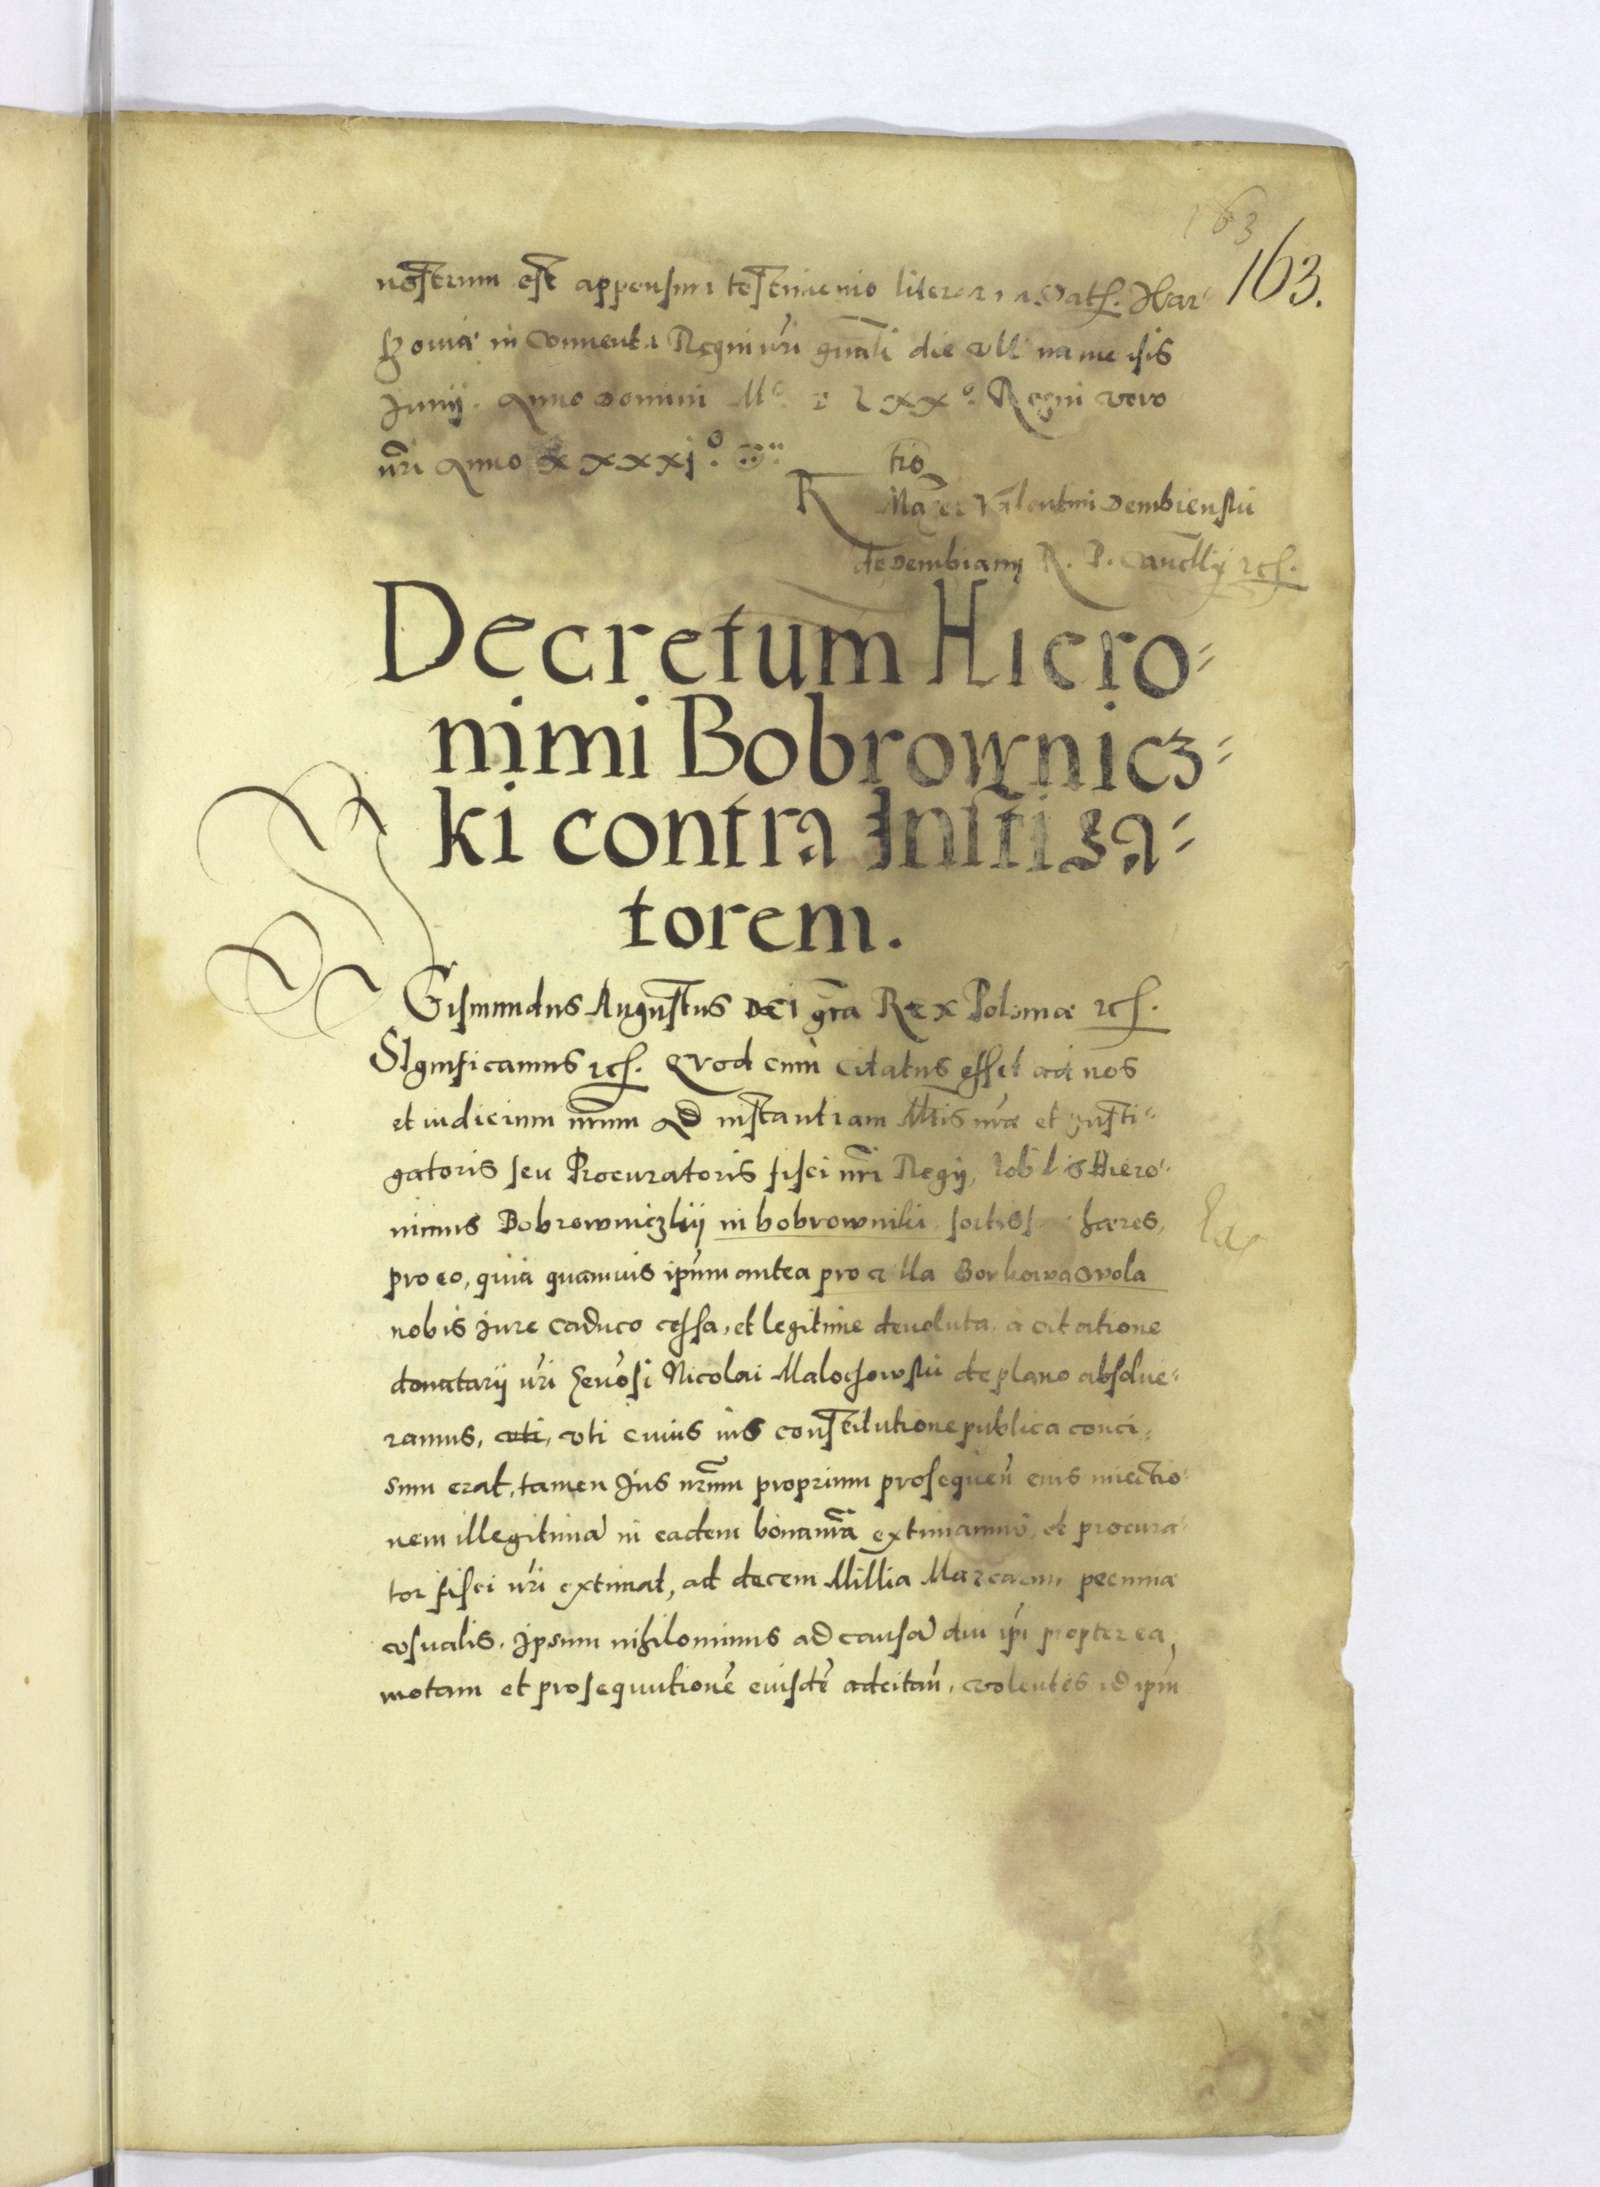 163
163.
nostrum est appensum testimonio literarum Datz. War
szouiæ in Conuentu Regni nri gnali die
Junij. Anno Domini M° D LXX°. Regni vero
nri Anno XXXXI°.
R tio
Mag ci Valentini Dembienskii
de Dembiany R. P. Cancllrij etc.
Decretum Hiero-
nimi Bobrownicz-
ki contra Instiga-
torem.
Gismundus Augustus Dei gra Rex Poloniæ etc.
Significamus etc. Quod cum citatus esset ad nos
et iudicium nrum ad instantiam Mtis nræ et Insti-
gatoris seu Procuratoris fisci nri Regij, Nobilis Hiero-
nimus Bobrowniczkij in bobrowniki sortis hæres,
pro eo, quia quamuis ipsum antea pro villa Borkowaswola
nobis Jure caduco cessa, et legitime deuoluta, a citatione
donatarij nri Genosi Nicolai Malochowskii de plano absolue-
ramus, uti, vti cuius ius constitutione publica conci-
sum erat, tamen Jus nrum proprium prosequen eius iniectio-
nem illegitima in eadem bona nra extimamus, et procura-
tor fisci nri extimat, ad decem Millia Marcarum pecuniæ
cosualis. Ipsum nihilominus ad causa diu ipi propter ea,
motam et prosequutione eiusde adcitan, volentes id ipm